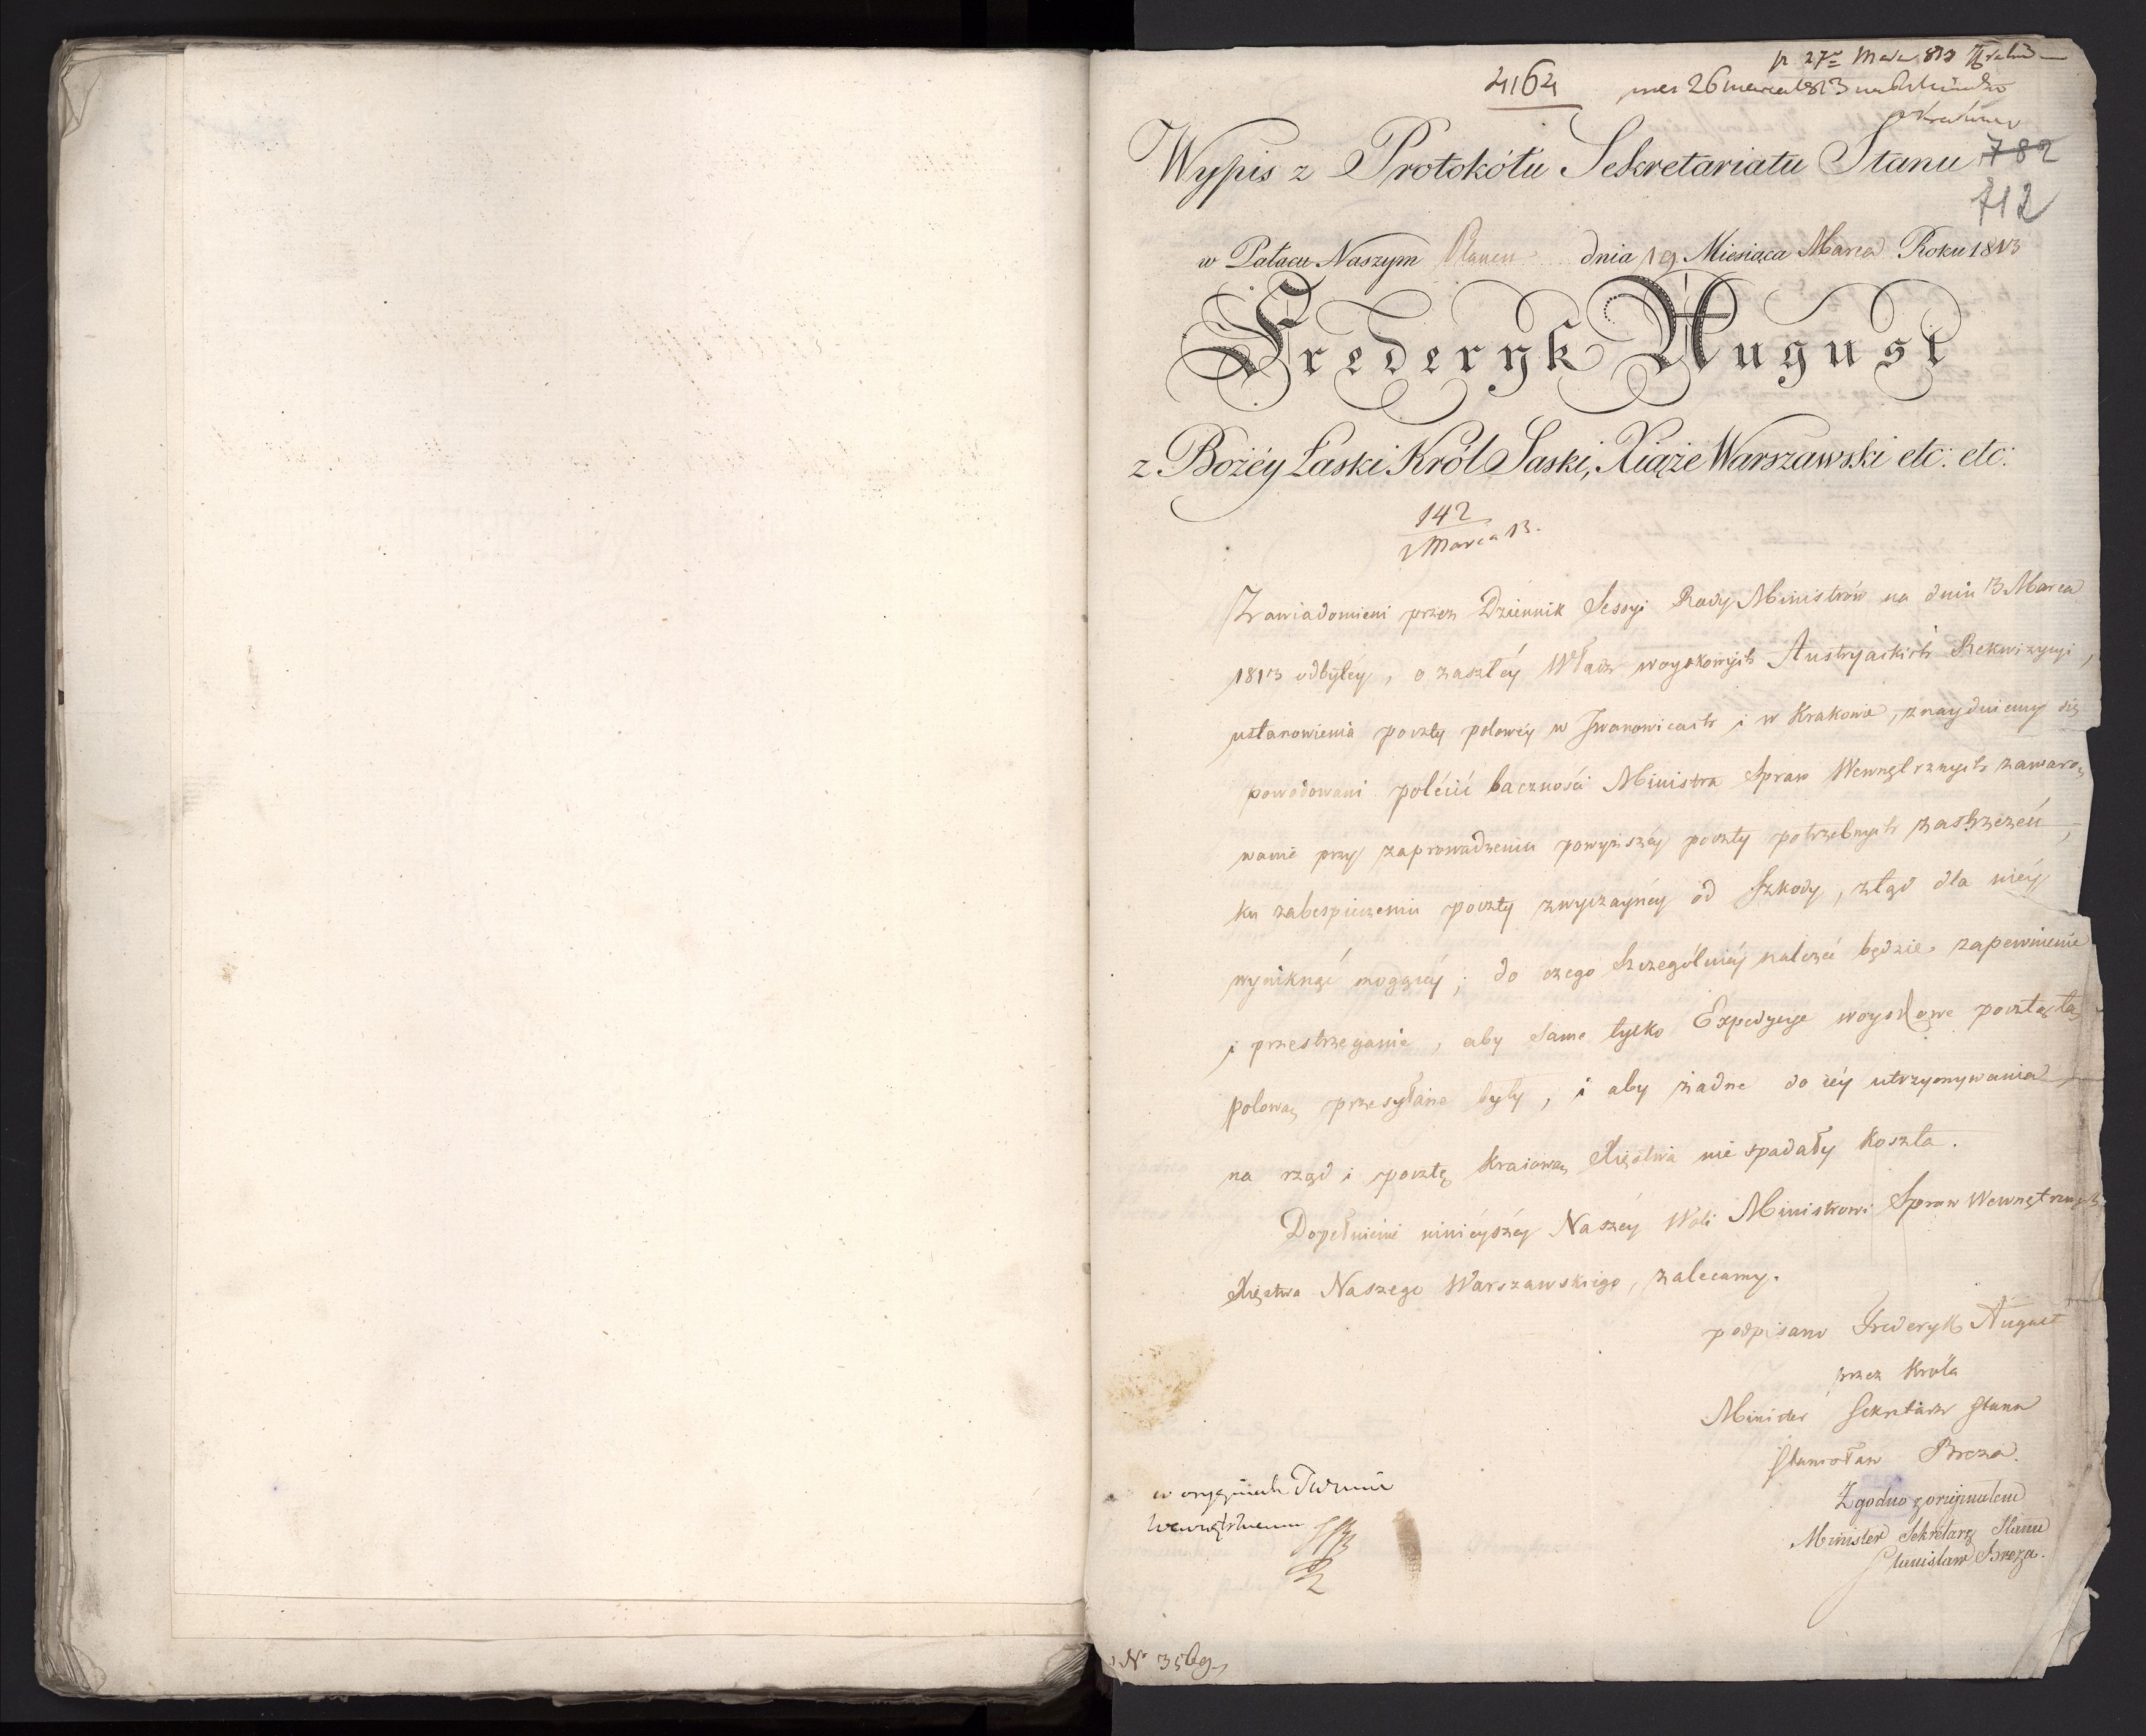 4164
27 Marca 813
26 marca 1813
Wypis z Protokółu Sekretariatu Stanu 782
712
w Pałacu Naszym Plauen dnia 19 Miesiąca Marca Roku 1813
Frederyk August
z Bożéy Łaski Król Saski, Xiąże Warszawski etc: etc:
142
Marca 13.
Zawiadomieni przez Dziennik Sessyi Rady Ministrów na dniu 13 Marca
1813 odbytéy, o zaszłéy Władz woyskowych Austryackich Rekwizycyi,
ustanowienia poczty polowéy w Iwanowicach i w Krakowie, znayduiemy się
powodowani polécić baczności Ministra Spraw Wewnętrznych zawaro,
wanie przy zaprowadzeniu powyższéy poczty potrzebnych zastrzeżeń,
ku zabespieczeniu poczty zwyczaynéy od Szkody, ztąd dla niéy
wyniknąć mogącéy; do czego Szczególniéy należeć będzie zapewnienie
i przestrzeganie, aby same tylko Expedycye woyskowe pocztą tą
polową przesyłane były, i aby żadne do iéy utrzymywania
na rząd i pocztę kraiową Xięstwa nie spadały koszta.
Dopełnienie ninieyszéy Naszéy Woli Ministrowi Spraw Wewnętrznych
Xięstwa Naszego Warszawskiego, zalecamy.
podpisano Frederyk August
przez Króla
Minister Sekretarz Stanu
Stanisław Breza.
Zgodno z oryginałem
Minister Sekretarz Stanu
Stanisław Breza.
w
No 3569